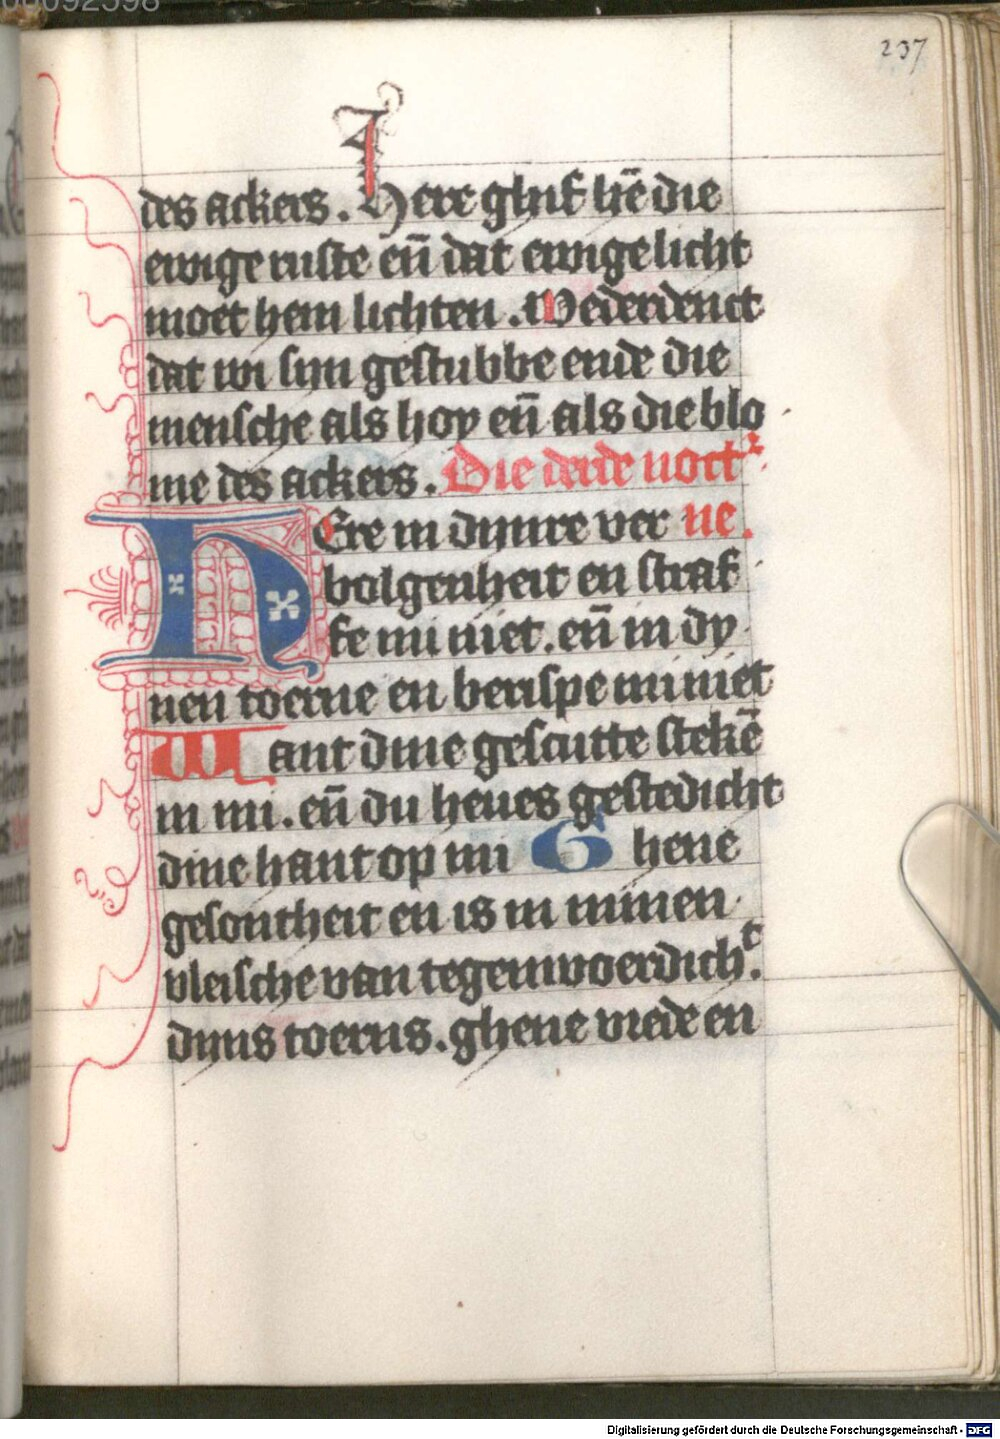 00092598
237
des ackers. Here ghif hē die
ewige ruste eñ dat ewige licht
moet hem lichten. Wederdenct
dat wi sijn gestubbe ende die
mensche als hoy eñ als die blo
me des ackers. Die derde noct
HEre in dijnre ver ne.
bolgenheit en straf
fe mi niet. eñ in dy
nen toerne en berispe mi niet
Want dine gescutte stekē
in mi. eñ du heues gestedicht
dine hant op mi Ghene
gesontheit en is in minen
vleische van tegenwoerdichᵗ.
dijns toerns. ghene vrede en
Digitalisierung gefördert durch die Deutsche Forschungsgemeinschaft - DFG